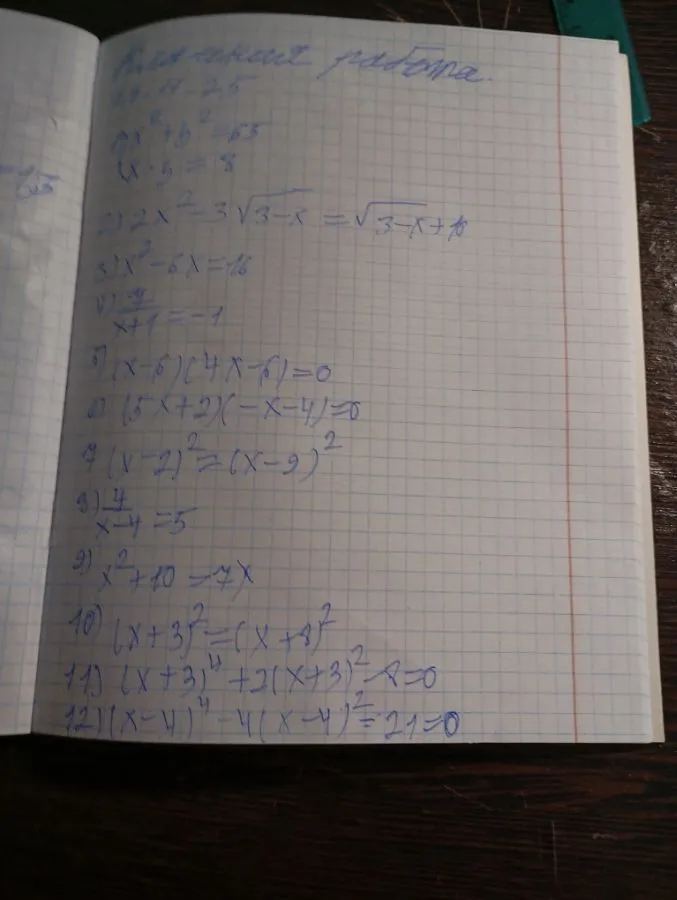 Классная работа.
x² + y² = 65
x · y = 8
2) 2x² - 3√3-x = √3-x + 16
3) x² - 6x = 16
4) 7/x+1 = -1
5) (x-6)(4x-6)=0
6) (5x+2)(-x-4)=0
7 (x-2)² = (x-9)²
8) 4/x-4 = 5
9) x² + 10 = 7x
10) (x+3)² = (x+8)²
11) (x+3)⁴ + 2(x+3)² - 8 = 0
12) (x-4)⁴ - 4(x-4)² - 21 = 0